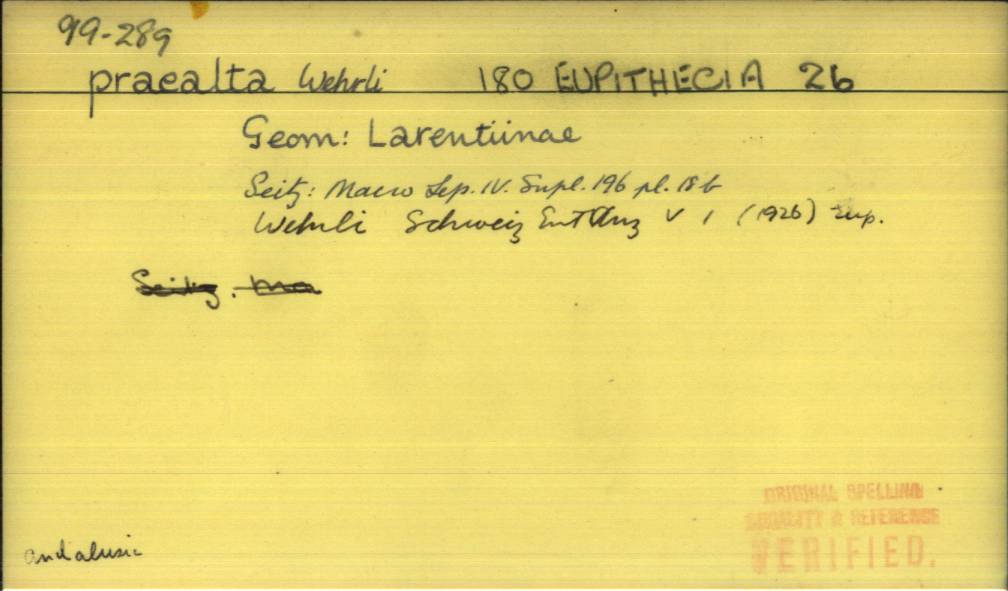 99-289
praealta Wehrli 180 EUPITHECIA 26
Geom: Larentiinae
Seitz: Macro Lep. IV. Supl. 196 pl. 18 b
Wehrli Schweiz Ent Anz V 1 (1926) sup.
Seitz. Ma
andalusia
ORIGINAL SPELLING
LOCALITY & REFERENCE
VERIFIED.